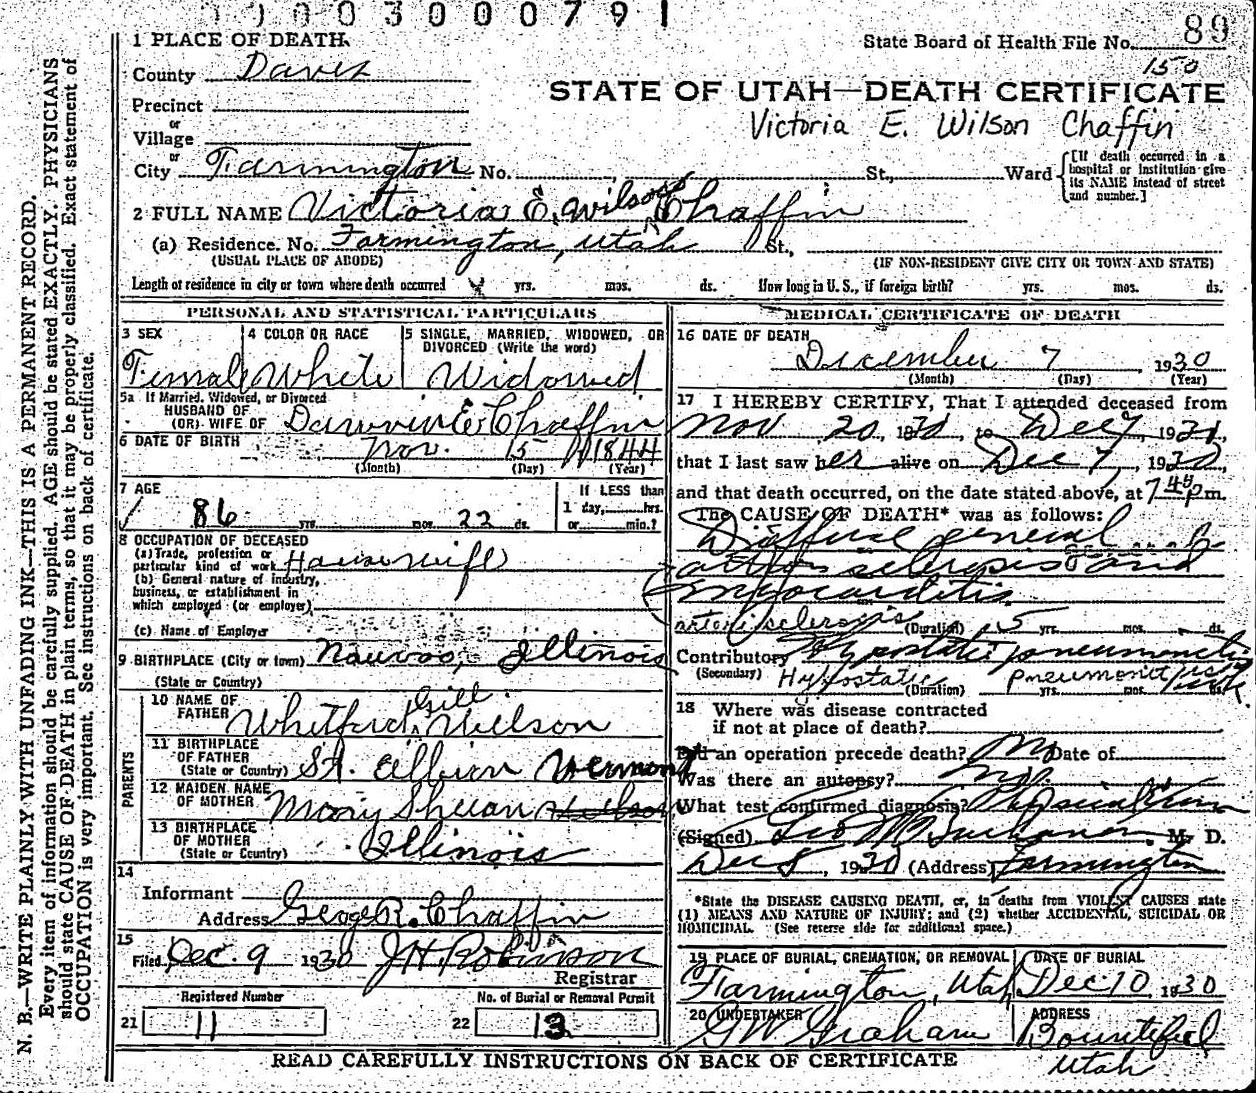 1 0 0 3 0 0 0 7 9 1
89
1 PLACE OF DEATH
State Board of Health File No.
150
County Davis
STATE OF UTAH—DEATH CERTIFICATE
Precinct
Victoria E. Wilson Chaffin
or
Village
or
City Farmington No. St., Ward
[If death occurred in a hospital or institution give its NAME instead of street and number.]
2 FULL NAME Victoria E. Wilson Chaffin
(a) Residence. No. Farmington, Utah St.,
(USUAL PLACE OF ABODE) (IF NON-RESIDENT GIVE CITY OR TOWN AND STATE)
Length of residence in city or town where death occurred yrs. mos. ds. How long in U. S., if foreign birth? yrs. mos. ds.
PERSONAL AND STATISTICAL PARTICULARS
3 SEX 4 COLOR OR RACE 5 SINGLE, MARRIED, WIDOWED, OR
DIVORCED (Write the word)
Female White Widowed
5a If Married, Widowed, or Divorced
HUSBAND OF
(OR) WIFE OF Darwin E Chaffin
6 DATE OF BIRTH Nov. 15 1844
(Month) (Day) (Year)
7 AGE If LESS than
1 day, hrs.
86 yrs. mos. 22 ds. or min.?
8 OCCUPATION OF DECEASED
(a) Trade, profession or
particular kind of work Housewife
(b) General nature of industry,
business, or establishment in
which employed (or employer)
(c) Name of Employer
9 BIRTHPLACE (City or town) Nauvoo, Illinois
(State or Country)
PARENTS
10 NAME OF
FATHER Whitford Gill Wilson
11 BIRTHPLACE
OF FATHER
(State or Country) St. Albion Vermont
12 MAIDEN NAME
OF MOTHER Mary
13 BIRTHPLACE
OF MOTHER
(State or Country) Illinois
14
Informant
Address George R. Chaffin
15
Filed Dec. 9 1930 J H Robinson
Registrar
Registered Number No. of Burial or Removal Permit
21 11 22 13
MEDICAL CERTIFICATE OF DEATH
16 DATE OF DEATH
December 7 1930
(Month) (Day) (Year)
17 I HEREBY CERTIFY, That I attended deceased from
Nov 20, 1930, to Dec 7, 1930,
that I last saw her alive on Dec 7, 1930,
and that death occurred, on the date stated above, at 7 45 p m.
The CAUSE OF DEATH* was as follows:
Diffuse general
arterio sclerosis and
myocarditis
arterio sclerosis (Duration) 5 yrs. mos. ds.
Contributory Hypostatic pneumonia
(Secondary) Hypostatic Pneumonia
(Duration) yrs. mos. wk.
18 Where was disease contracted
if not at place of death?
Did an operation precede death? No Date of
Was there an autopsy? no.
What test confirmed diagnosis?
(Signed) Geo M Buchanan M. D.
Dec 8, 1930 (Address) Farmington
*State the DISEASE CAUSING DEATH, or, in deaths from VIOLENT CAUSES state
(1) MEANS AND NATURE OF INJURY; and (2) whether ACCIDENTAL, SUICIDAL OR
HOMICIDAL. (See reverse side for additional space.)
19 PLACE OF BURIAL, CREMATION, OR REMOVAL DATE OF BURIAL
Farmington, Utah Dec 10, 1930
20 UNDERTAKER ADDRESS
G W Graham Bountiful
Utah
READ CAREFULLY INSTRUCTIONS ON BACK OF CERTIFICATE
N. B.—WRITE PLAINLY WITH UNFADING INK—THIS IS A PERMANENT RECORD.
Every item of information should be carefully supplied. AGE should be stated EXACTLY. PHYSICIANS
should state CAUSE OF DEATH in plain terms, so that it may be properly classified. Exact statement of
OCCUPATION is very important. See instructions on back of certificate.